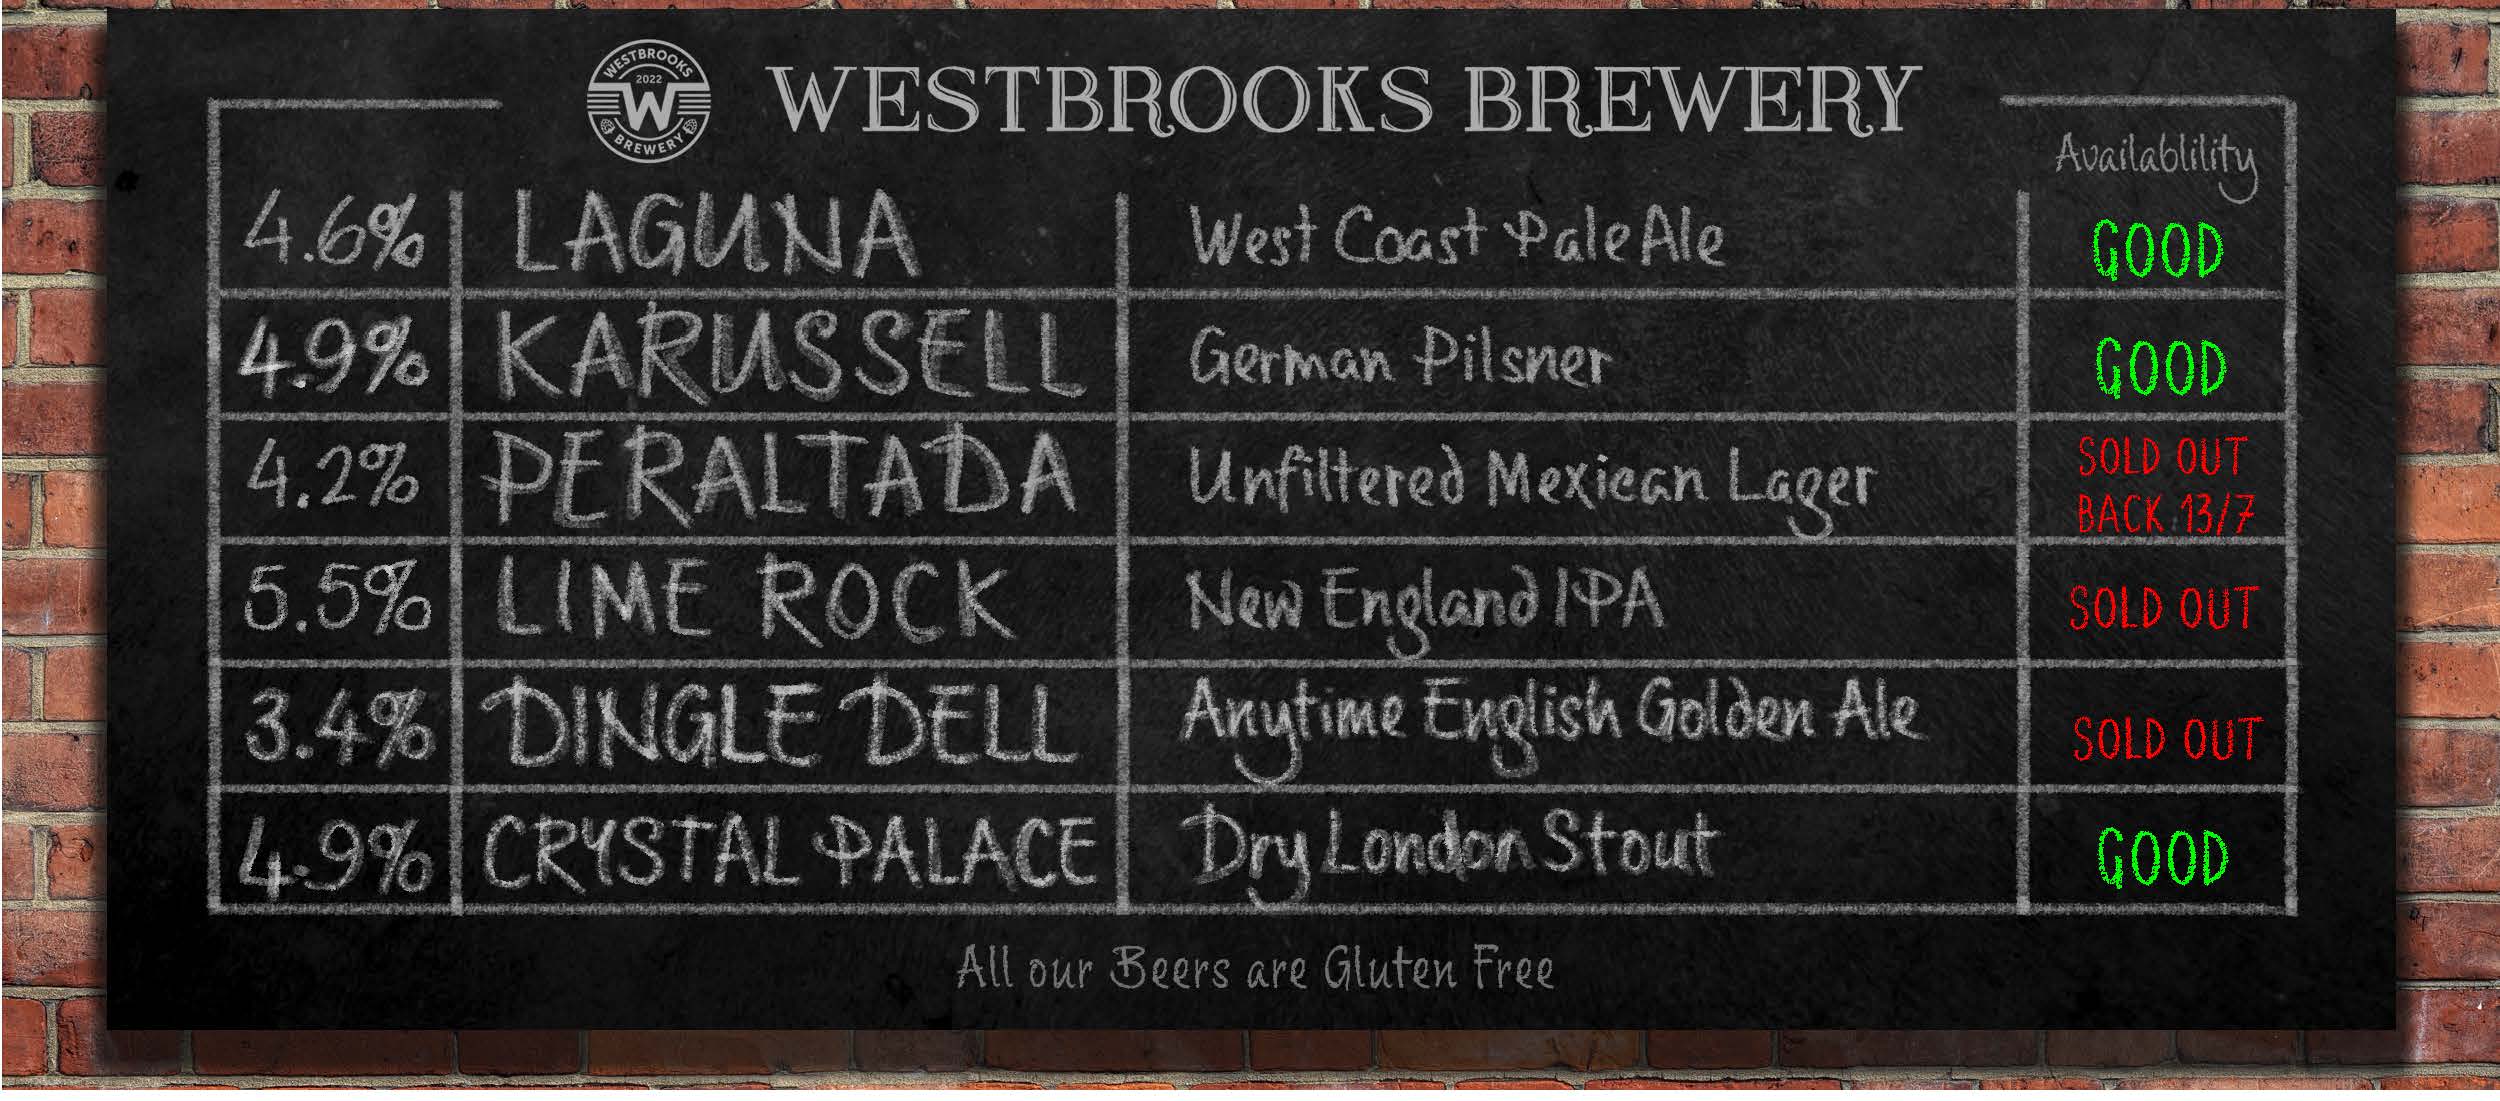 WESTBROOKS
2022
W
BREWERY
WESTBROOKS BREWERY
Availablility
4.6% LAGUNA West Coast Pale Ale GOOD
4.9% KARUSSELL German Pilsner GOOD
4.2% PERALTADA Unfiltered Mexican Lager SOLD OUT
BACK 13/7
5.5% LIME ROCK New England IPA SOLD OUT
3.4% DINGLE DELL Anytime English Golden Ale SOLD OUT
4.9% CRYSTAL PALACE Dry London Stout GOOD
All our Beers are Gluten Free